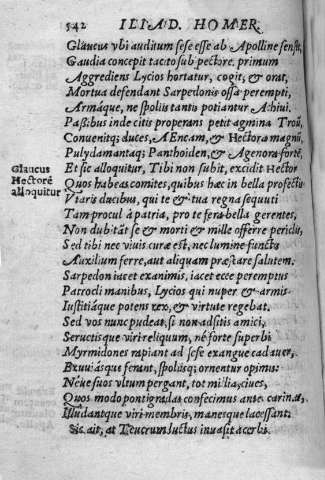 542 ILIAD. HOMER.
Glaucus vbi auditum sese esse ab Apolline sensit,
Gaudia concepit tacito sub pectore. primum
Aggrediens Lycios hortatur, cogit, & orat,
Mortua defendant Sarpedonis ossa perempti,
Armáque, ne spoliis tantis potiantur Achiui.
Passibus inde citis properans petit agmina Troũ,
Conuenitq; duces, AEneam, & Hectora magnũ,
Pulydamantaq; Panthoiden, & Agenora fortẽ,
Et sic alloquitur, Tibi non subit, excidit Hector
Glaucus
Hectorẽ
alloquitur
Quos habeas comites, quibus hæc in bella profectis
Vtaris ducibus, qui te & tua regna sequuti
Tam procul à patria, pro te fera bella gerentes,
Non dubitãt se & morti & mille offerre periclis,
Sed tibi nec viuis curæ est, nec lumine functis
Auxilium ferre, aut aliquam præstare salutem.
Sarpedon iacet exanimis, iacet ecce peremptus
Patrocli manibus, Lycios qui nuper & armis
Iustitiáque potens rex, & virtute regebat.
Sed vos nunc pudeat, si non adsitis amici,
Seruetisque viri reliquum, né forte superbi
Myrmidones rapiant ad sese exangue cadauer,
Exuuiásque ferant, spoliisq; ornentur opimis:
Néue suos vltum pergant, tot millia, ciues,
Quos modo pontigradas confecimus ante carinas,
Illudantque viri membris, manesque lacessant.
Sic ait, at Teucrum luctus inuasit acerbi.